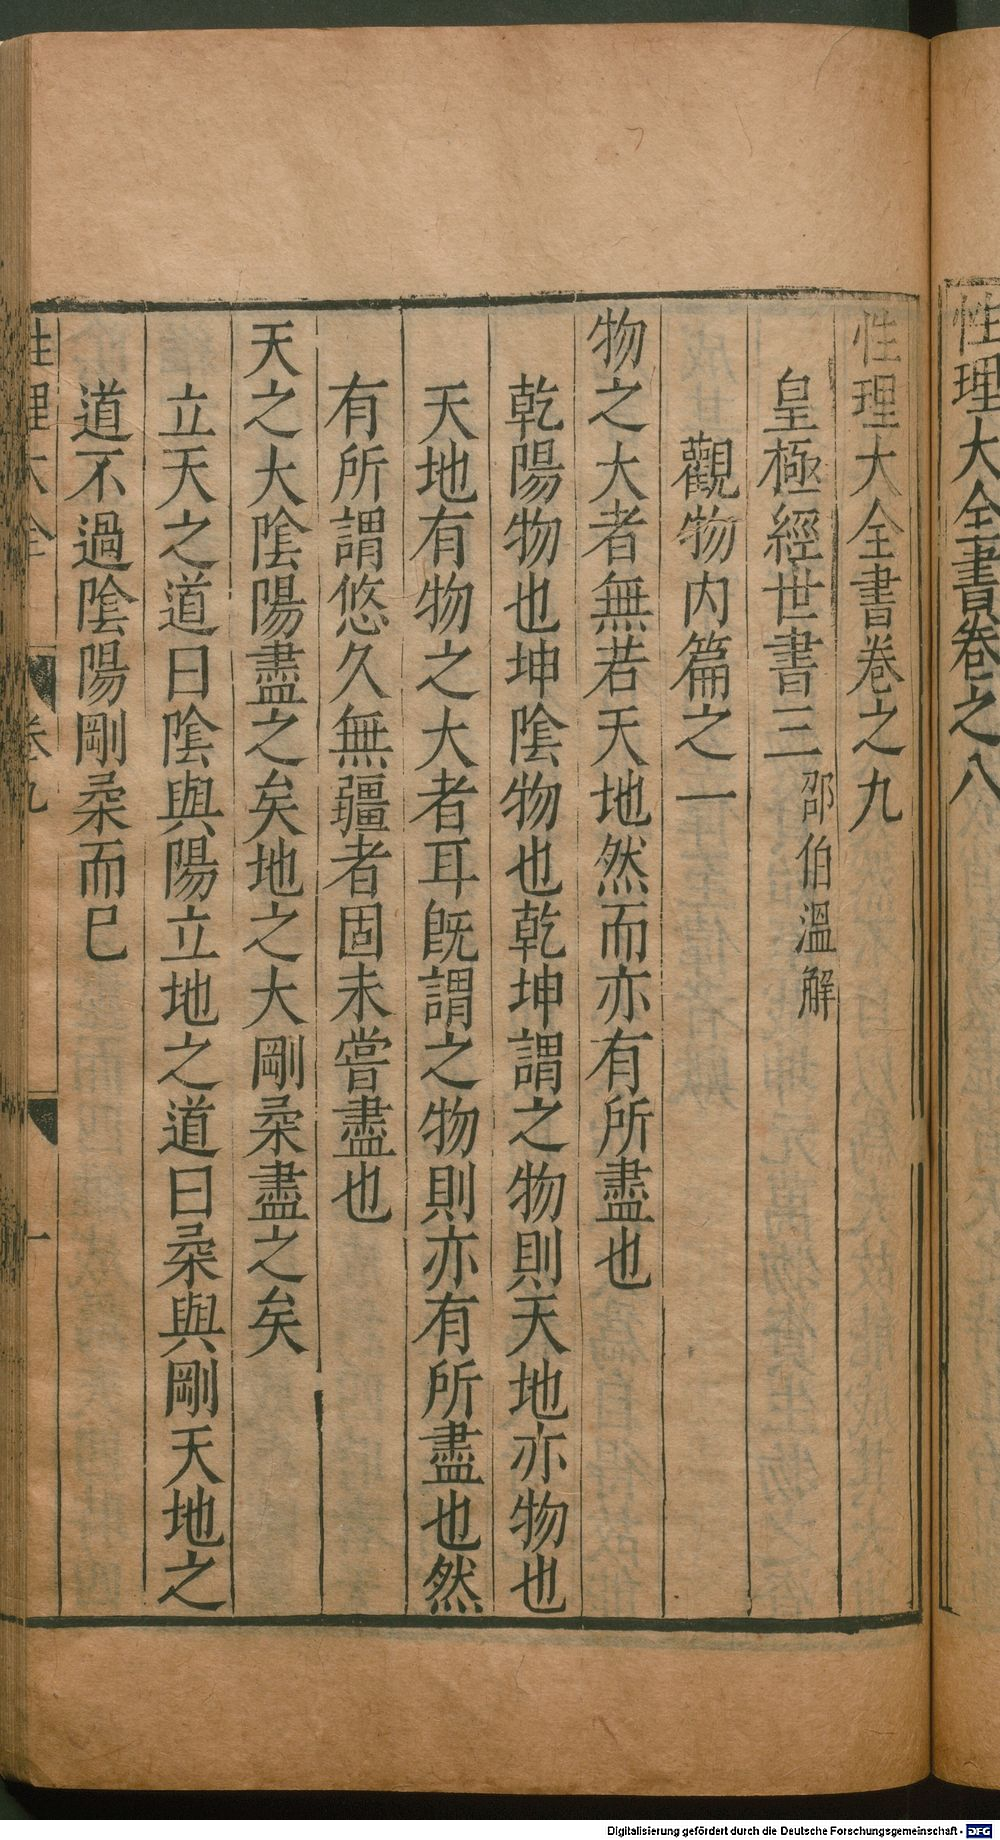 性理大全書卷之八
性理大全書卷之九
皇極經世書三 邵伯溫解
觀物内篇之一
物之大者無若天地然而亦有所盡也
乾陽物也坤陰物也乾坤謂之物則天地亦物也
天地有物之大者耳既謂之物則亦有所盡也然
有所謂悠久無疆者固未嘗盡也
天之大陰陽盡之矣地之大剛柔盡之矣
立天之道曰陰與陽立地之道曰柔與剛天地之
道不過陰陽剛柔而巳
性理大全 卷九 一
Digitalisierung gefördert durch die Deutsche Forschungsgemeinschaft - DFG